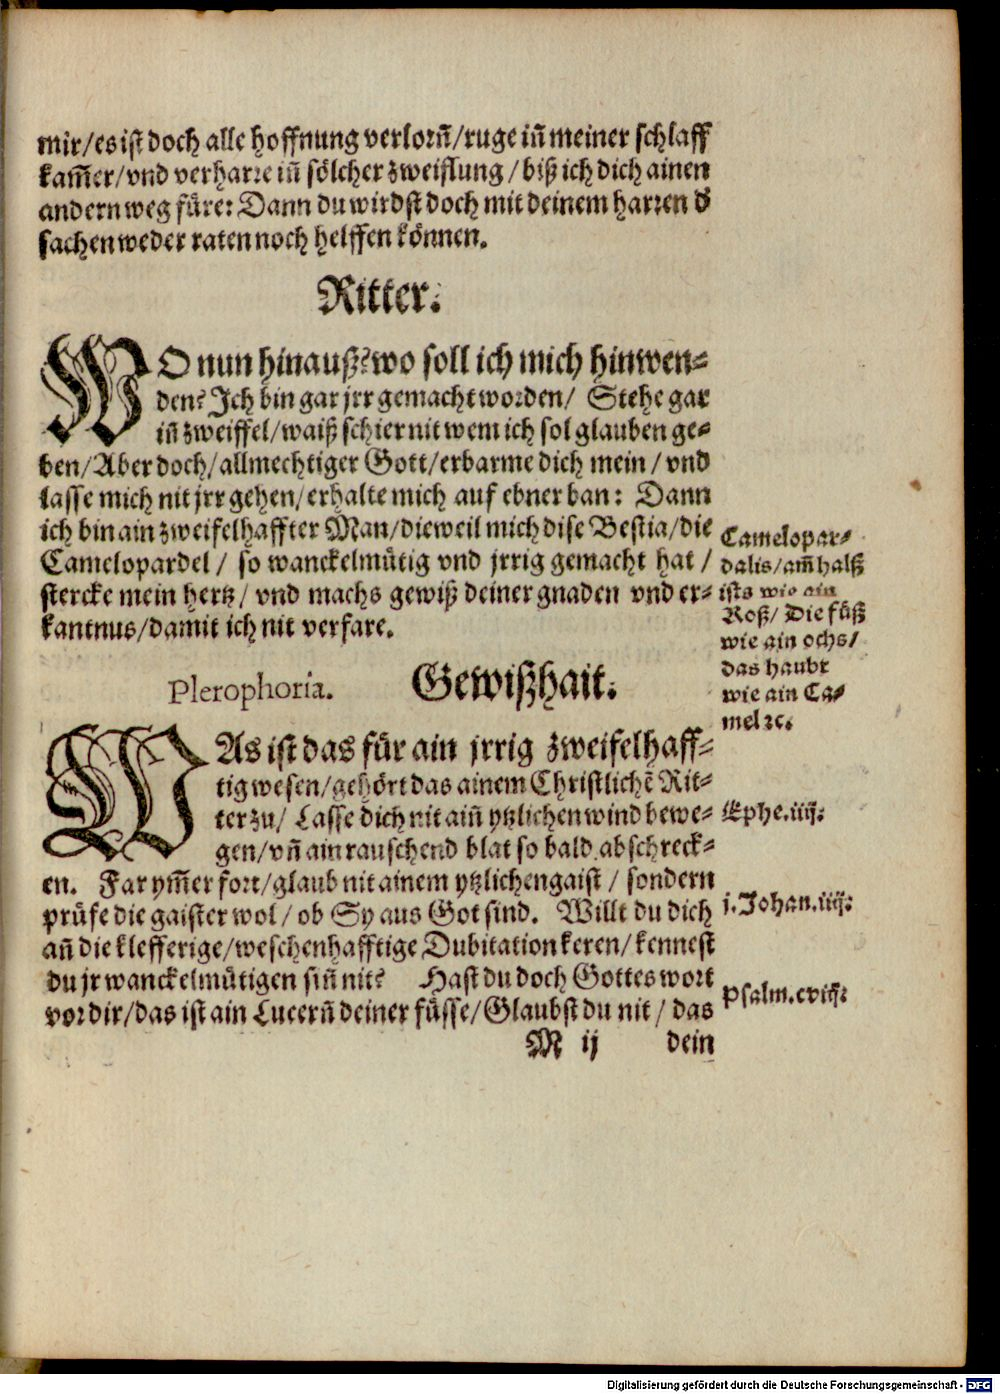 mir/es ist doch alle hoffnung verlorn̄/ruge in̄ meiner schlaff
kam̄er/vnd verharre in̄ sölcher zweiflung/biß ich dich ainen
andern weg füre: Dann du wirdst doch mit deinem harren d'
sachen weder raten noch helffen können.
Ritter.
WO nun hinauß? wo soll ich mich hinwen-
den? Ich bin gar jrr gemacht worden/ Stehe gar
in̄ zweiffel/waiß schier nit wem ich sol glauben ge-
ben/Aber doch/allmechtiger Gott/erbarme dich mein/vnd
lasse mich nit jrr gehen/erhalte mich auf ebner ban: Dann
ich bin ain zweifelhaffter Man/dieweil mich dise Bestia/die
Camelopardel/ so wanckelmütig vnd jrrig gemacht hat/
stercke mein hertz/ vnd machs gewiß deiner gnaden vnd er-
kantnus/damit ich nit verfare.
Camelopar-
dalis/am̄ halß
ists wie ain
Roß/ Die füß
wie ain ochs/
das haubt
wie ain Ca-
mel ꝛc.
Plerophoria. Gewißhait.
WAs ist das für ain jrrig zweifelhaff-
tig wesen/gehört das ainem Christlichē Rit-
ter zu/ Lasse dich nit ain̄ ytzlichen wind bewe-
gen/vn̄ ain rauschend blat so bald abschreck-
en. Far ym̄er fort/glaub nit ainem ytzlichen gaist/ sondern
prüfe die gaister wol/ ob Sy aus Got sind. Willt du dich
an̄ die klefferige/weschenhafftige Dubitation keren/kennest
du jr wanckelmütigen sin̄ nit? Hast du doch Gottes wort
vor dir/das ist ain Lucern̄ deiner füsse/Glaubst du nit/ das
Ephe.iiij.
j.Johan.iiij.
Psalm.cviij.
M ij dein
Digitalisierung gefördert durch die Deutsche Forschungsgemeinschaft - DFG